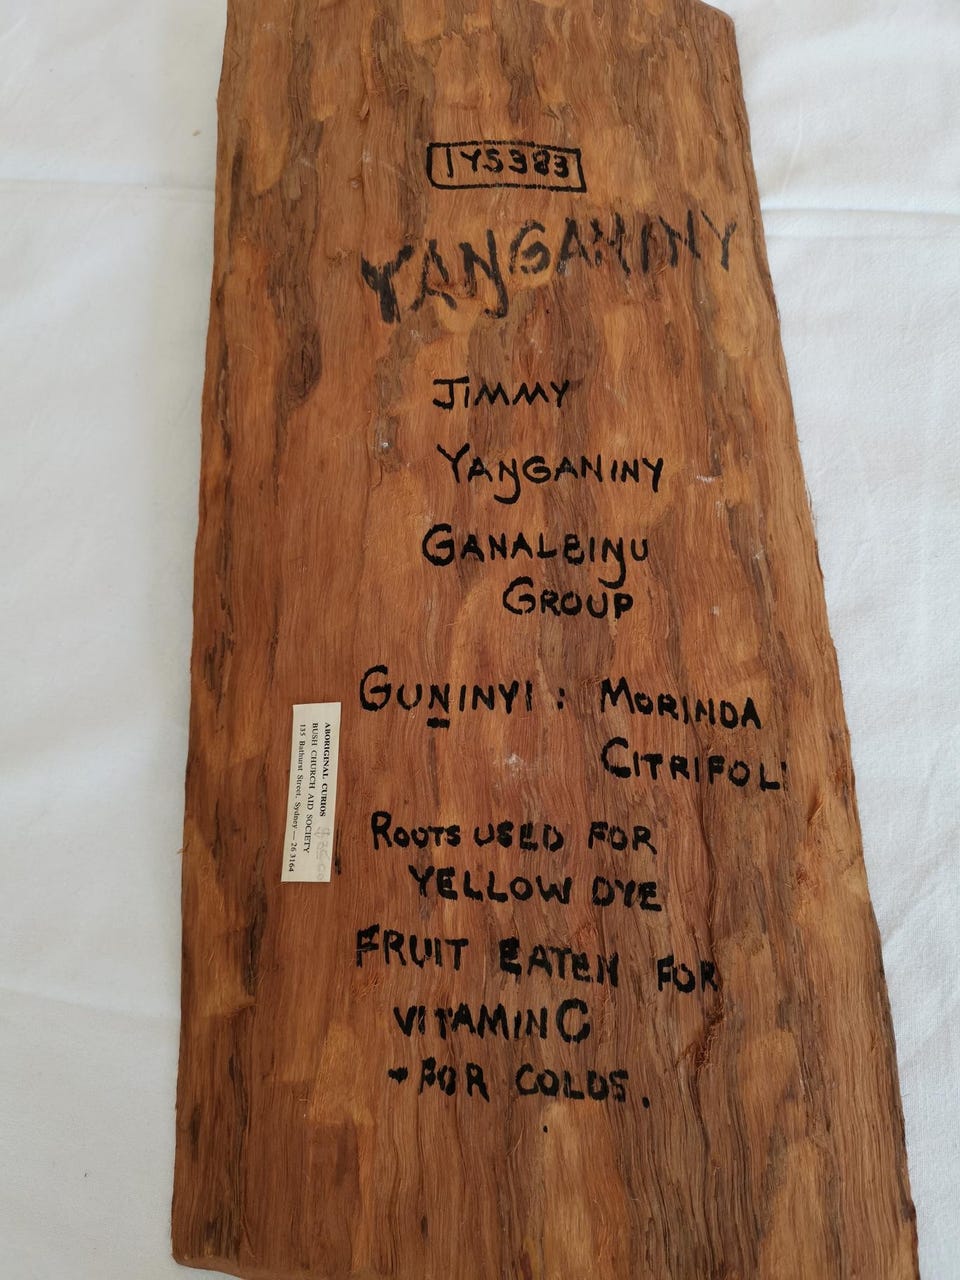 JYS383
YAŊGANINY
JIMMY
YAŊGANINY
GANALBIŊU
GROUP
GUṈINYI : MORINDA
CITRIFOLI
ROOTS USED FOR
YELLOW DYE
FRUIT EATEN FOR
VITAMIN C
- FOR COLDS.
ABORIGINAL CURIOS
BUSH CHURCH AID SOCIETY
135 Bathurst Street, Sydney — 26 3164